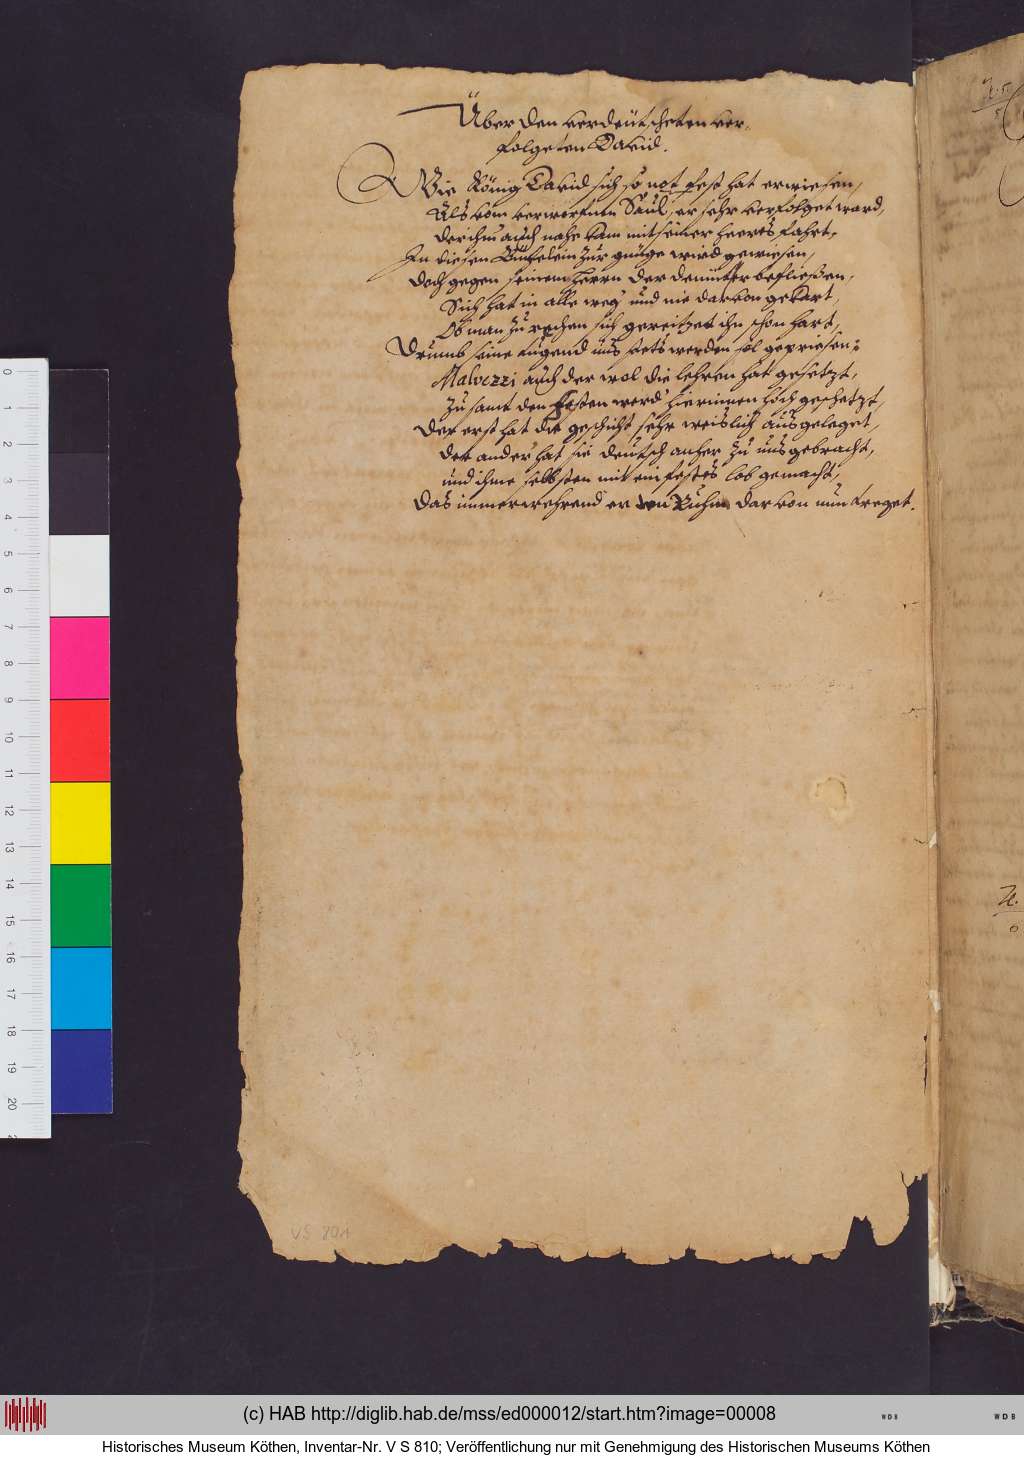 Über den verdeutscheten ver-
folgeten David.
Wie König David sich so not fest hat erwiesen,
Als vom verworfnen Saul, er sehr verfolget ward,
der ihm auch nahe kam mit seiner heeres fahrt,
In diesen Büchelein zur gnüge wird gewiesen,
doch gegen seinem herrn der demütter befließen,
Sich hat in alle weg' und nie darvon gekart,
Ob man zu rechen sich gereitzet ihn schon hart,
Drumb seine tugend uns stets werden sol gepriesen:
Malvezzi auch der wol die lehren hat gesetzt,
Zu samt den Festen werd' hierinnen hoch geschetzt,
Der erst hat die geschicht sehr weislich ausgeleget,
der ander hat sie deutsch anher zu uns gebracht,
und ihme selbsten mit ein festes lob gemacht,
Das immerwehrend' er den Ruhm darvon nun treget.
N. 5.
N.
6
VS 801
0
1
2
3
4
5
6
7
8
9
10
11
12
13
14
15
16
17
18
19
20
(c) HAB http://diglib.hab.de/mss/ed000012/start.htm?image=00008
WDB
WDB
Historisches Museum Köthen, Inventar-Nr. V S 810; Veröffentlichung nur mit Genehmigung des Historischen Museums Köthen